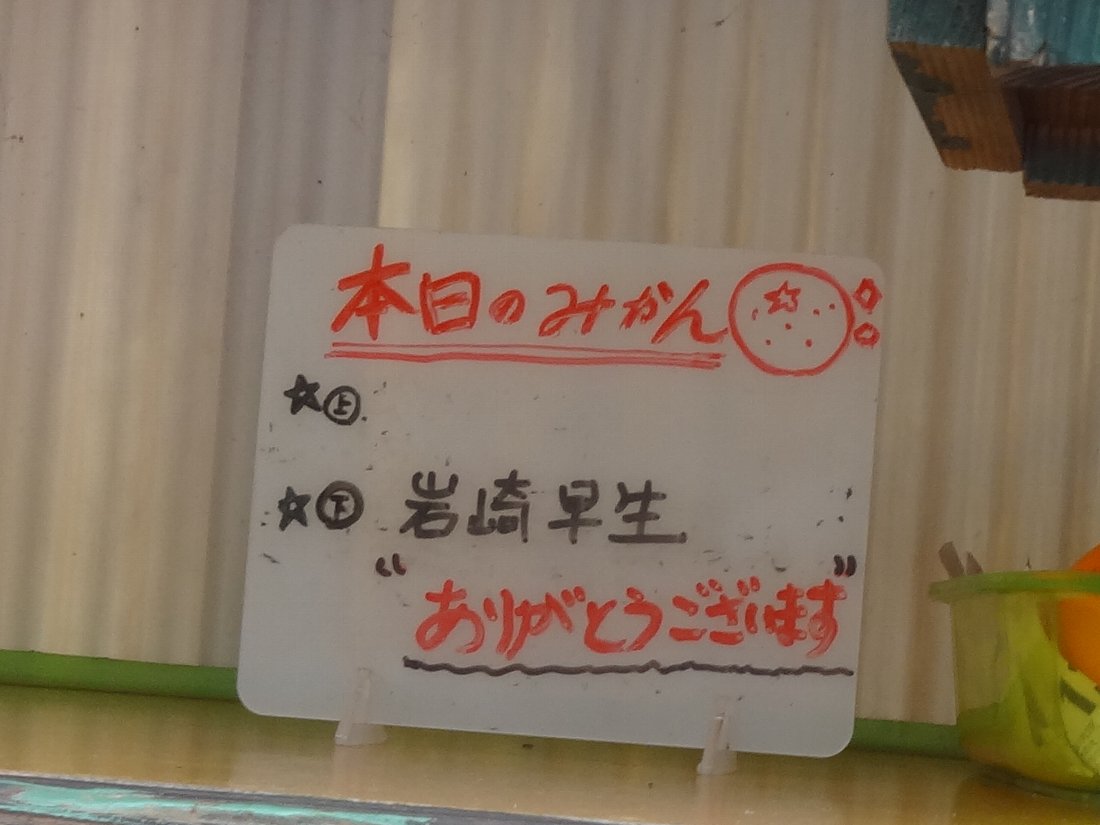 本日のみかん
☆㊤.
☆㊦ 岩崎早生
“ありがとうございます”